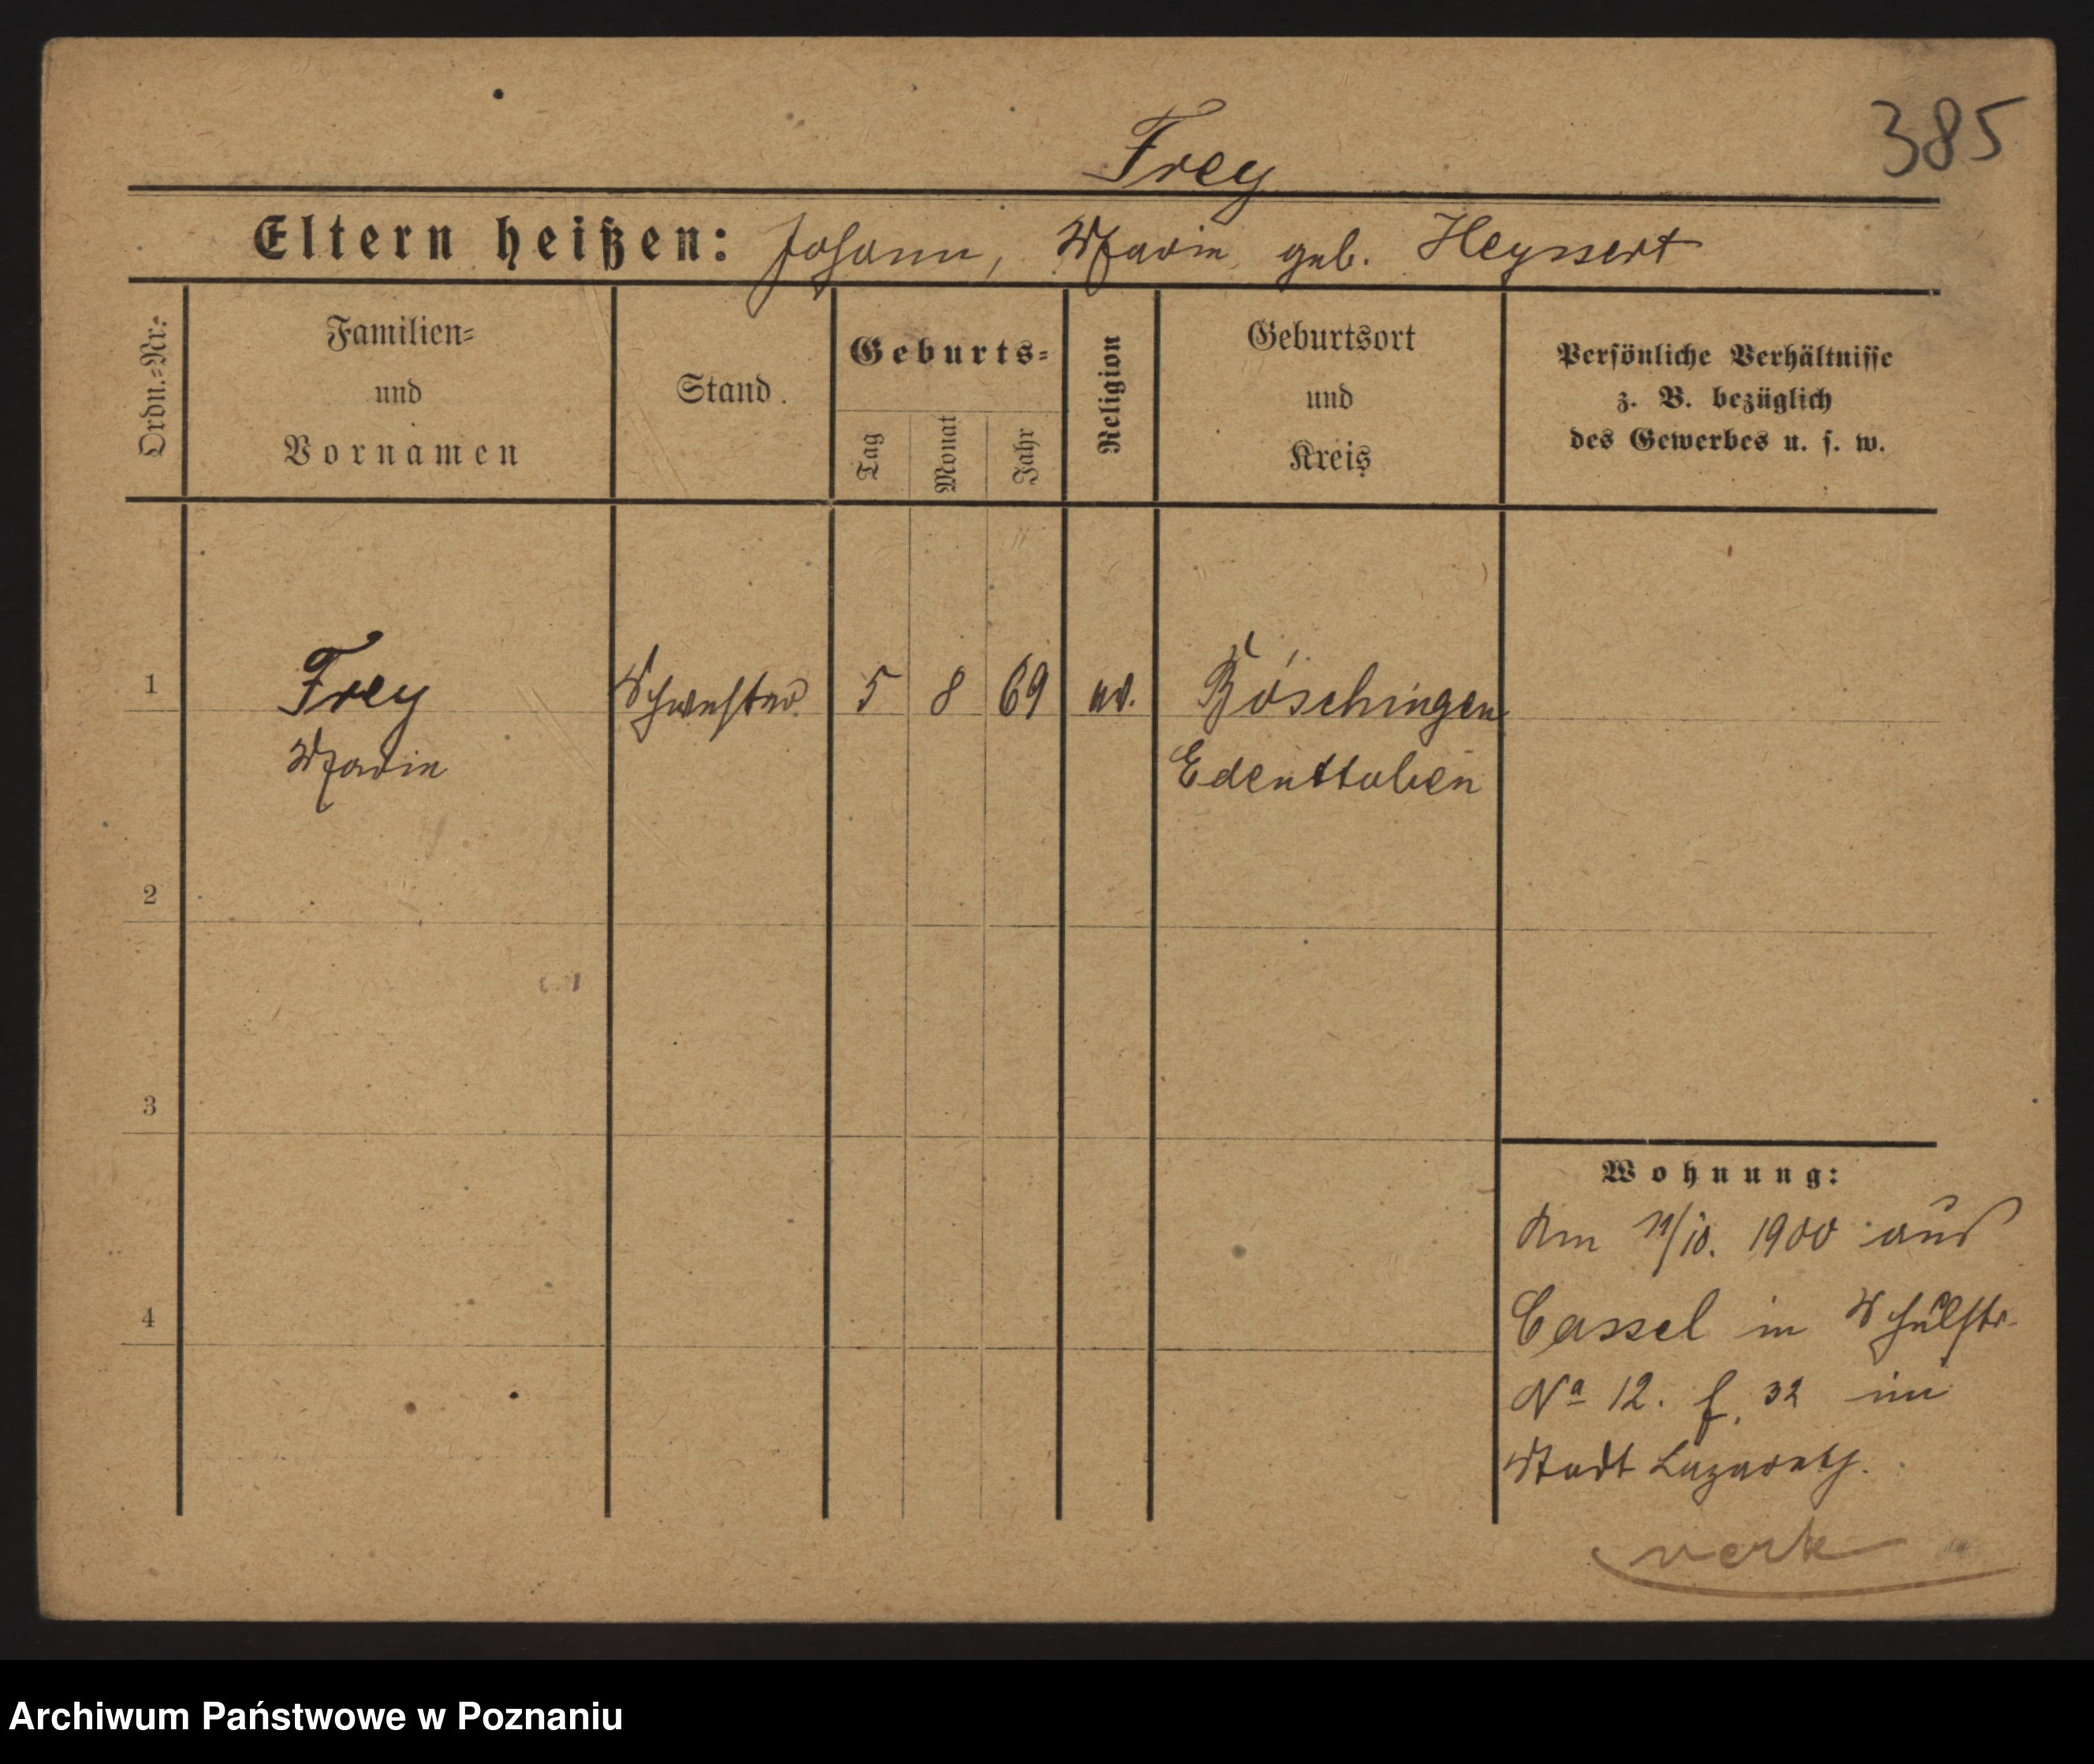 385
Frey
Eltern heißen: Johann, Marie geb. Heyssert
Ordn.-Nr.
Familien-
und
Vornamen
Stand.
Geburts-
Tag
Monat
Jahr
Religion
Geburtsort
und
Kreis
Persönliche Verhältnisse
z. B. bezüglich
des Gewerbes u. s. w.
1
Frey
Marie
Schwester
5
8
69
ev.
Böschingen
Edenttoben
2
3
4
Wohnung:
Am 11/10. 1900 aus
Cassel in Schulstr.
No 12. f. 32 im
Stadt Lazareth.
verte
Archiwum Państwowe w Poznaniu